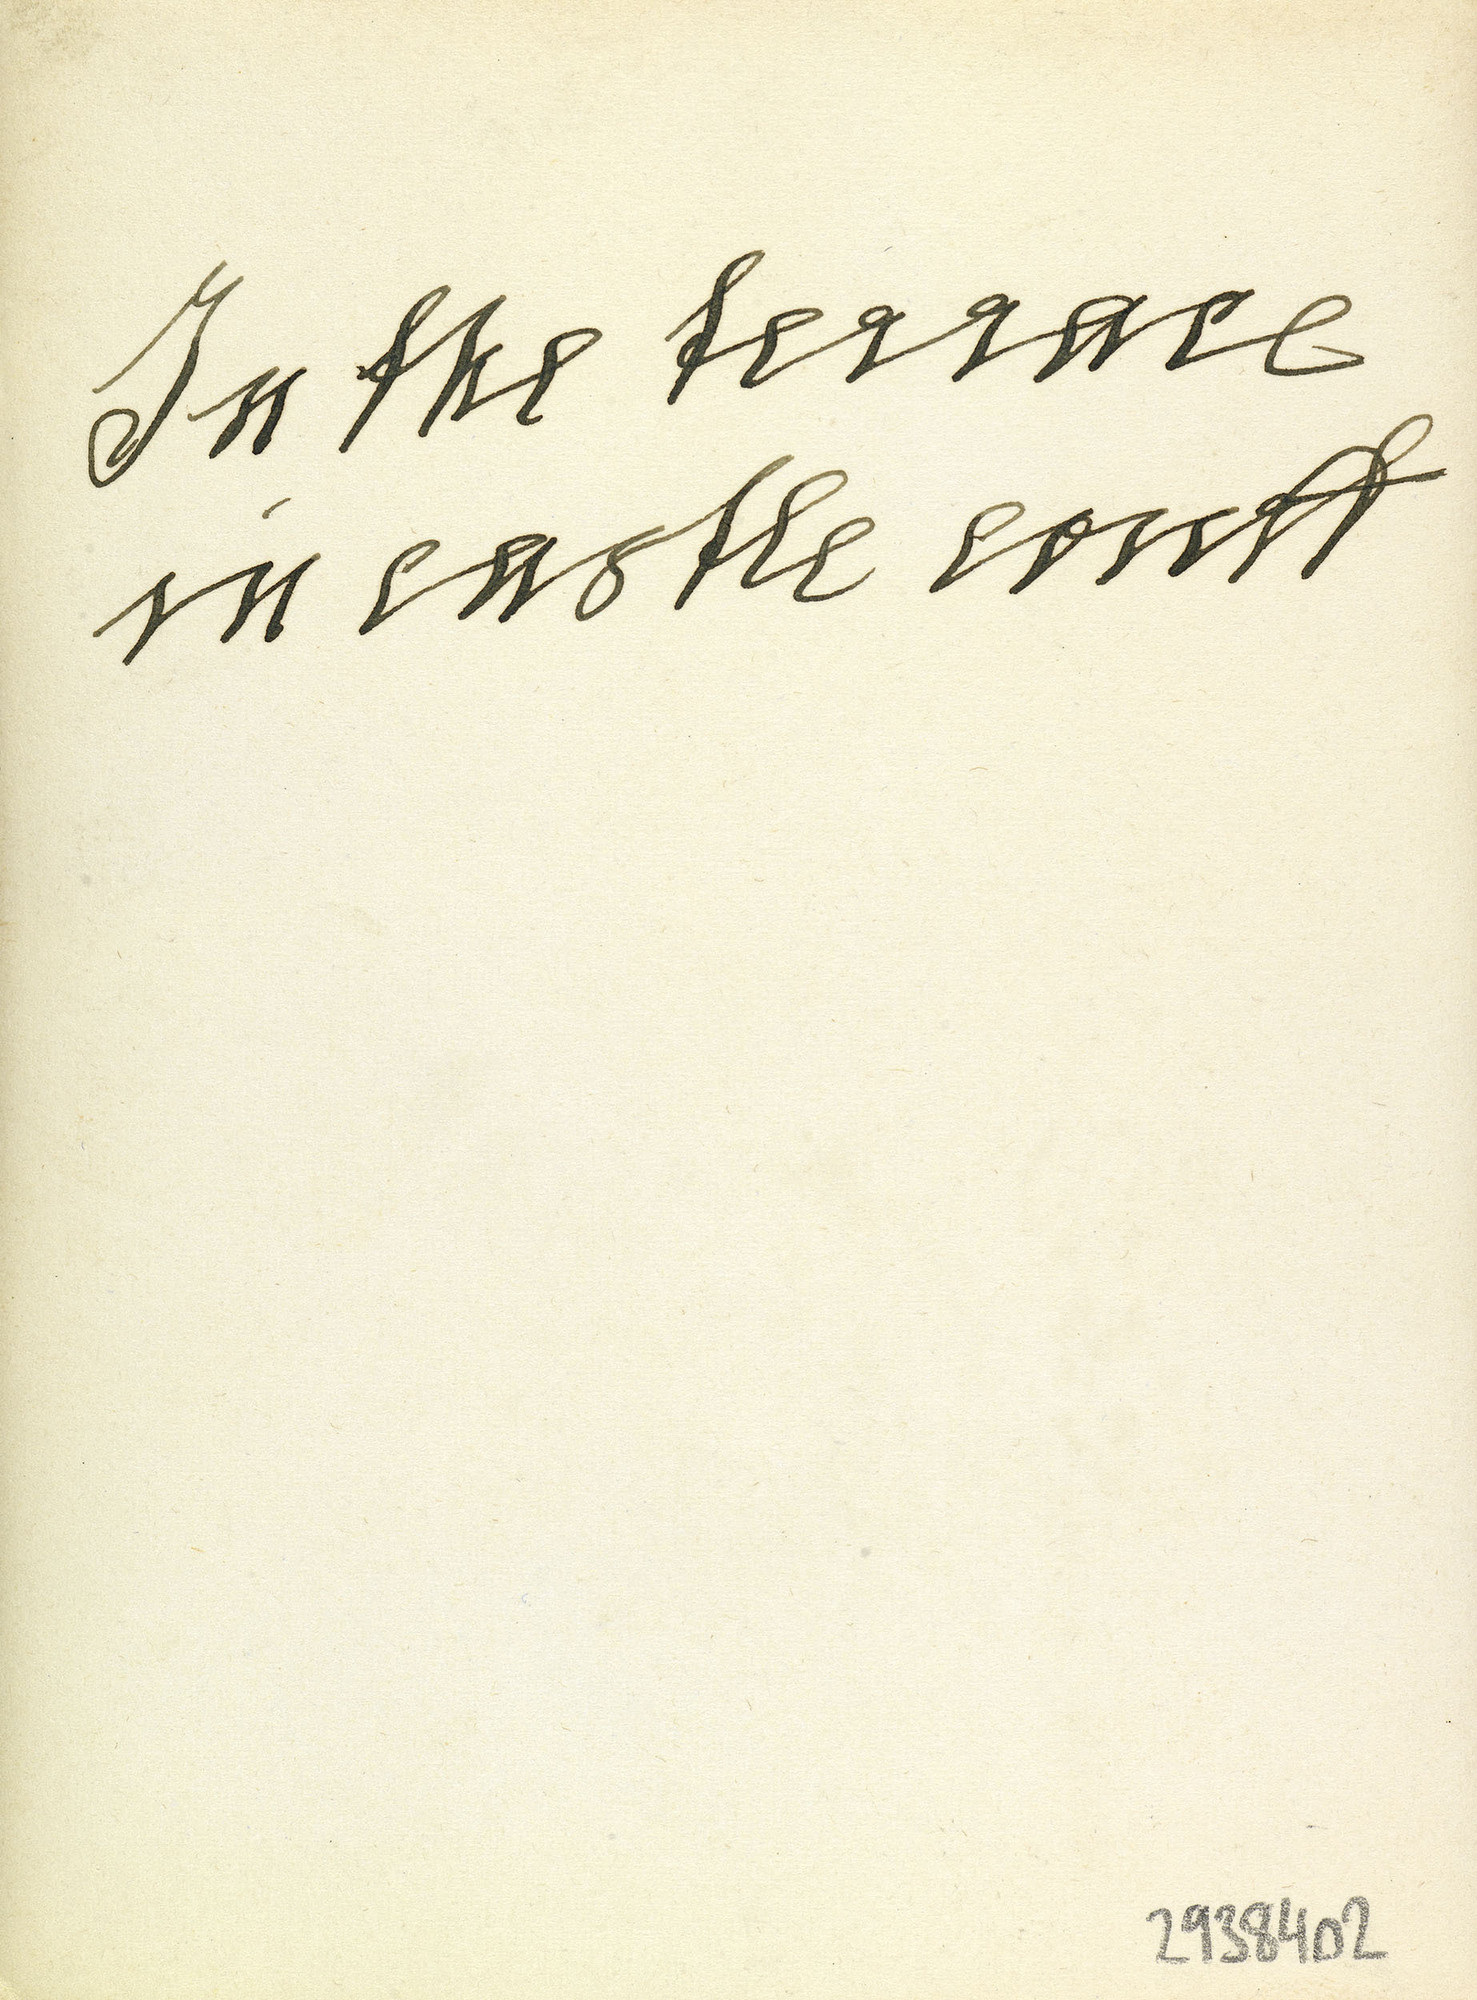 In the terrace
in castle court
2938402